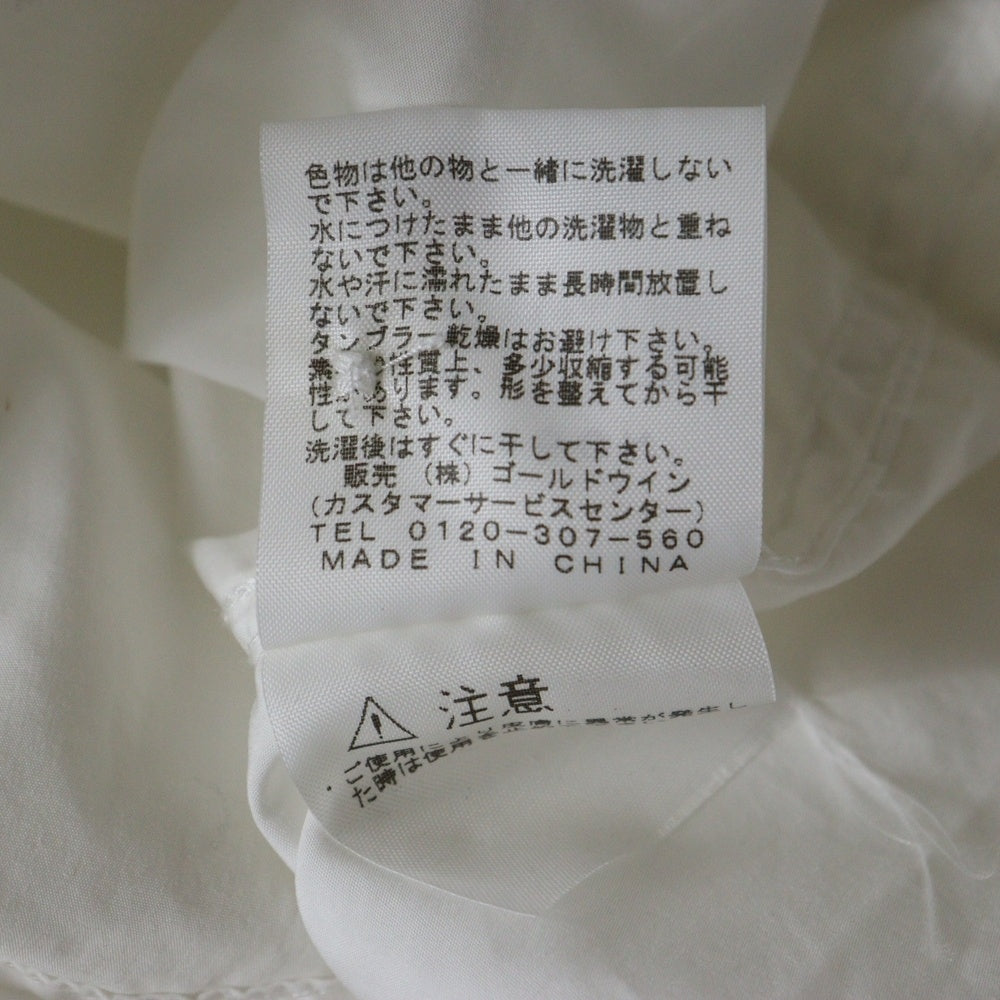 色物は他の物と一緒に洗濯しない
で下さい。
水につけたまま他の洗濯物と重ね
ないで下さい。
水や汗に濡れたまま長時間放置し
ないで下さい。
タンブラー乾燥はお避け下さい。
性質上、多少収縮する可能
性があります。形を整えてから干
して下さい。
洗濯後はすぐに干して下さい。
販売 (株) ゴールドウイン
(カスタマーサービスセンター)
TEL 0120-307-560
MADE IN CHINA
注意
・ご使用に 皮膚に異常が発生し
た時は使用を